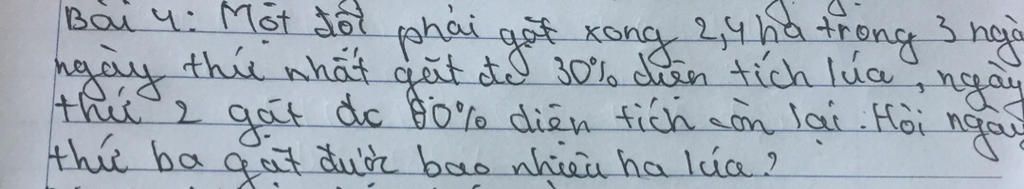 Bài 4: Một đội phải gặt xong 2,4 ha trong 3 ngà
ngày thứ nhất gặt đc 30% diện tích lúa, ngày
thứ 2 gặt đc 80% diện tích còn lại. Hỏi ngày
thứ ba gặt được bao nhiêu ha lúa?